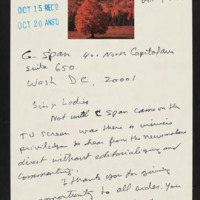 OCT 15 REC'D
OCT 20 ANS'D
C-Span 400 North Capitol Ave
Suite 650
Wash DC, 20001
Sir & Ladies
Not until C Span came on the
TV screen was there a viewers
privilege to hear from the newsmakers
direct without editorializing and
commenting.
I thank you for giving
opportunity to all sides. You